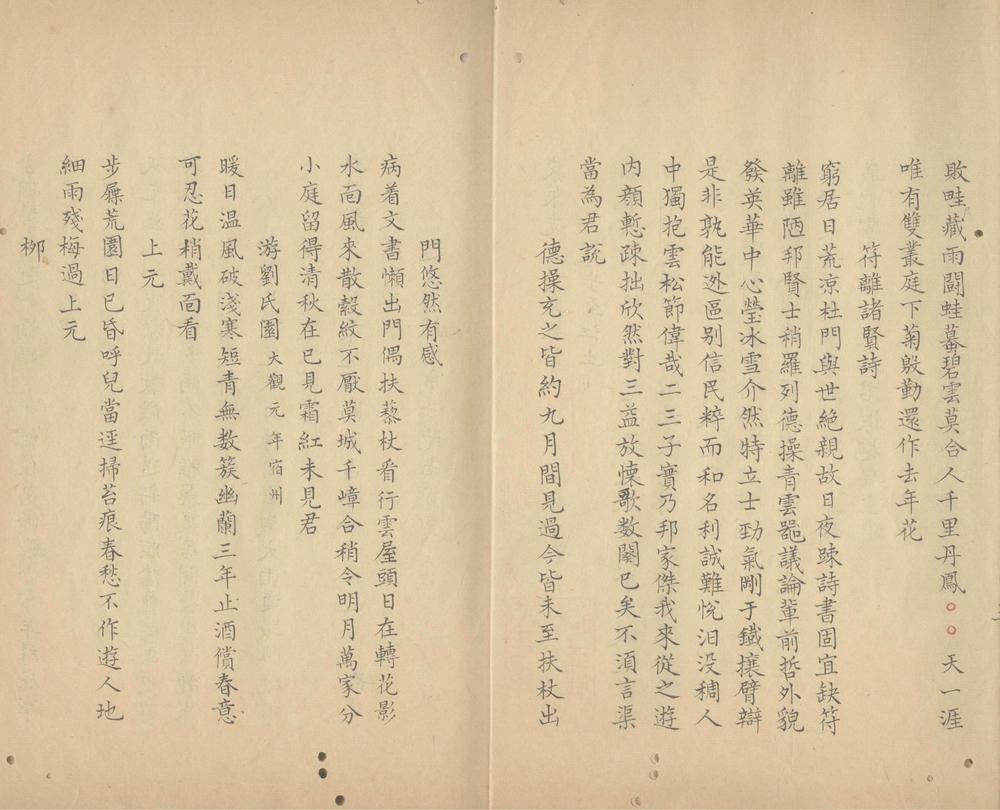 敗畦藏雨鬪蛙蟇碧雲莫合人千里丹鳳○○天一涯
唯有雙叢庭下菊殷勤還作去年花
符離諸賢詩
窮居日荒凉杜門與世絶親故日夜踈詩書固宜缺符
離雖陋邦賢士稍羅列德操青雲噐議論輩前哲外貌
發英華中心瑩冰雪介然特立士勁氣剛于鐵攘臂辯
是非孰能迯區别信民粹而和名利誠難悅汨没稠人
中獨抱雲松節偉哉二三子實乃邦家傑我來從之遊
内顔慙疎拙欣然對三益放懷歌数闋已矣不湏言渠
當為君說
德操充之皆約九月間見過今皆未至扶杖出
門悠然有感
病着文書懶出門偶扶藜杖看行雲屋頭日在轉花影
水面風來散縠紋不厭莫城千嶂合稍令明月萬家分
小庭留得清秋在已見霜紅未見君
游劉氏園大觀元年宿州
暖日温風破淺寒短青無数簇幽蘭三年止酒償春意
可忍花稍戴面看
上元
步屧荒園日已昏呼兒當逕掃苔痕春愁不作遊人地
細雨殘梅過上元
柳